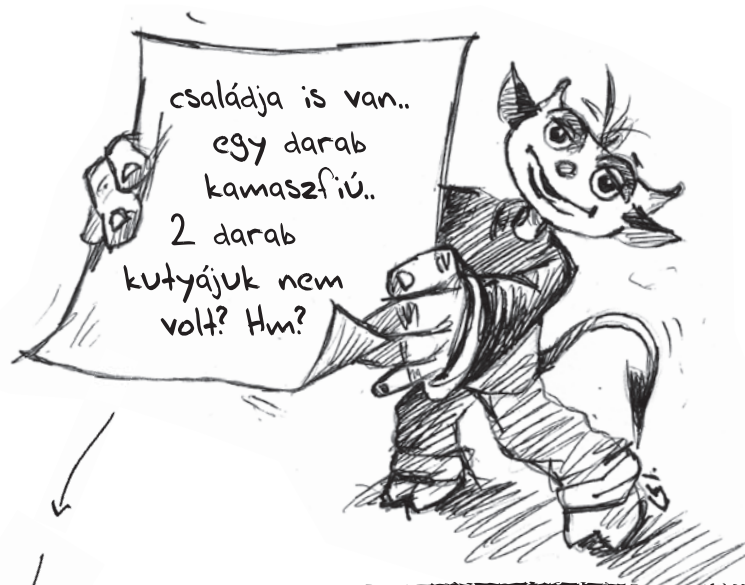 családja is van..
egy darab
kamaszfiú..
2 darab
kutyájuk nem
volt? Hm?